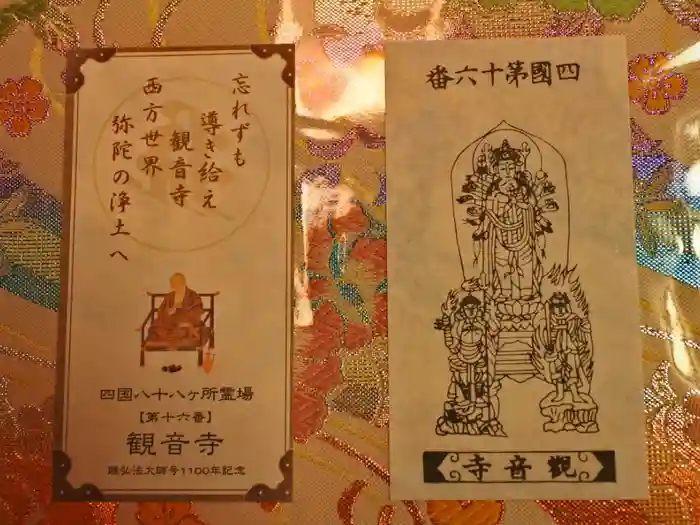 忘れずも
導き給え
観音寺
西方世界
弥陀の浄土へ
四国八十八ヶ所霊場
【第十六番】
観音寺
贈弘法大師号1100年記念
四國第十六番
觀音寺